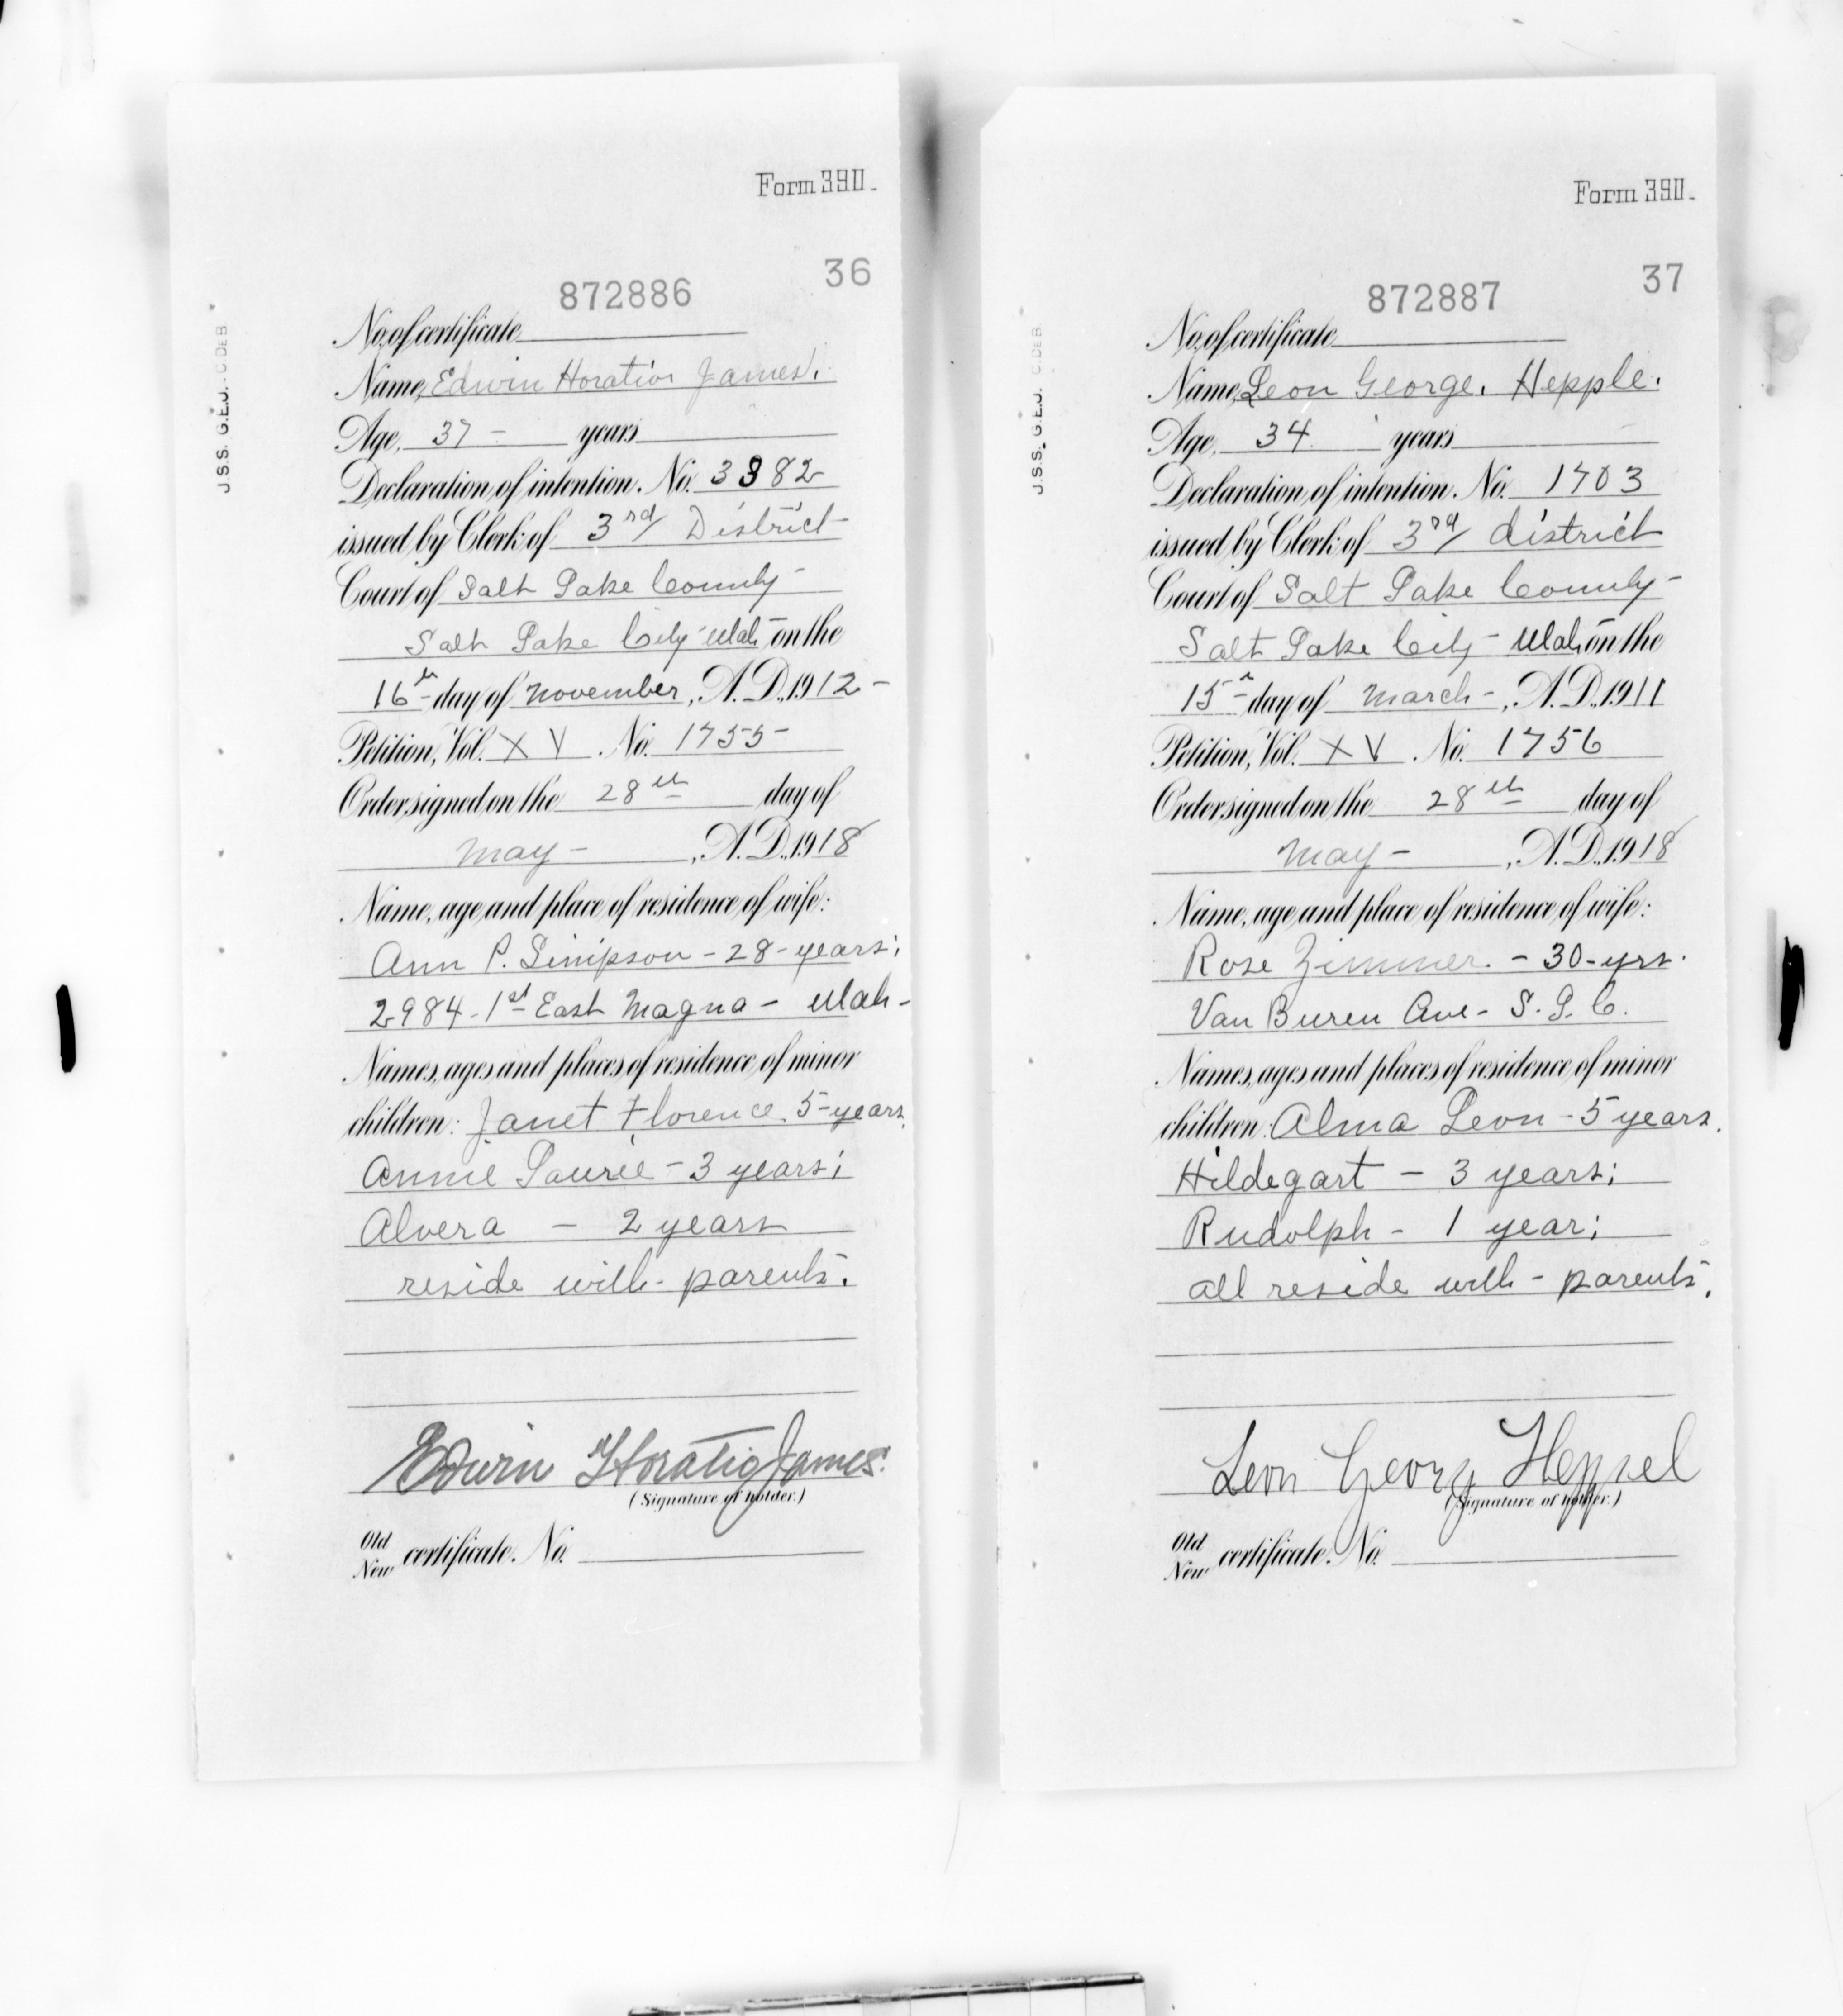 Form 390.
36
872886
No. of certificate
Name, Edwin Horatio James.
Age, 37 - years
Declaration of intention. No. 3382
issued by Clerk of 3rd District
Court of Salt Lake County -
Salt Lake City - Utah - on the
16th day of November, A.D. 1912 -
Petition, Vol. XV. No. 1755 -
Order signed on the 28th day of
May -, A.D. 1918
Name, age and place of residence of wife:
Ann P. Simpson - 28 - years;
2984 - 1st East Magna - Utah -
Names, ages and places of residence of minor
children: Janet Florence 5 - years.
Annie - 3 years;
Alvera - 2 years
reside with - parents.
Edwin Horatio James.
(Signature of holder.)
Old
New certificate. No.
J.S.S. G.E.J. C DEB
Form 390.
37
872887
No. of certificate
Name, Leon George. Hepple.
Age, 34 years
Declaration of intention. No. 1703
issued by Clerk of 3rd district
Court of Salt Lake County -
Salt Lake City - Utah, on the
15th day of March -, A.D. 1911
Petition, Vol. XV. No. 1756
Order signed on the 28th day of
May -, A.D. 1918
Name, age and place of residence of wife:
Rose Zimmer - 30 - yrs.
Van Buren Ave - S. L. C.
Names, ages and places of residence of minor
children: Alma Leon - 5 years.
Hildegart - 3 years;
Rudolph - 1 year;
all reside with - parents.
Leon Georg Heppel
(Signature of holder.)
Old
New certificate. No.
J.S.S. G.E.J. C DEB